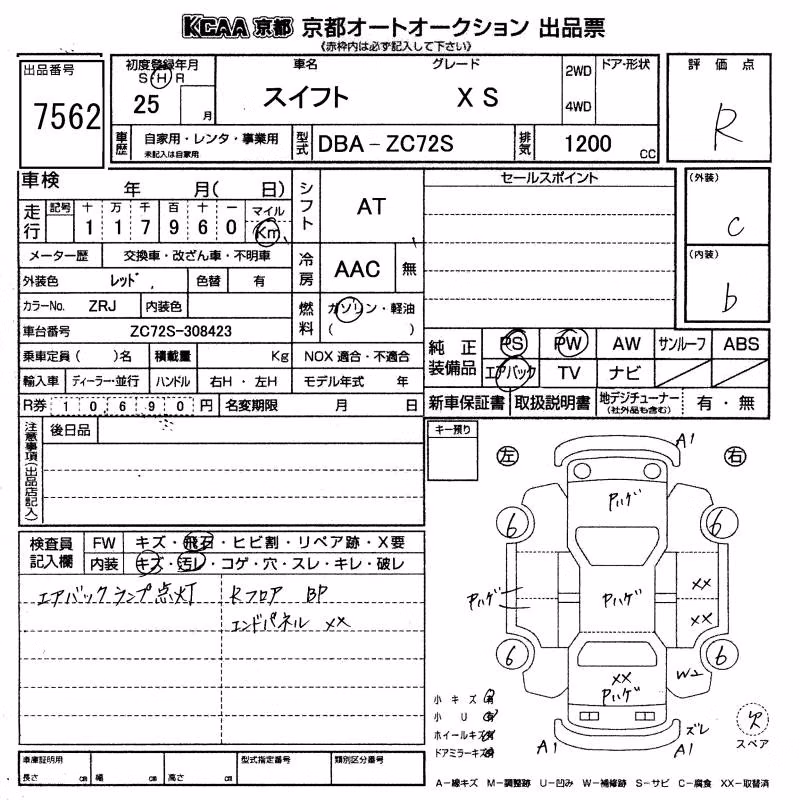 KCAA 京都 京都オートオークション 出品票
《赤枠内は必ず記入して下さい》
出品番号
7562
初度登録年月
S H R
25 月
車名 グレード
スイフト X S
2WD
4WD
ドア・形状
評価点
R
車歴 自家用・レンタ・事業用
未記入は自家用
型式 DBA-ZC72S 排気 1200 cc
車検 年 月( 日)
走行 記号 十 万 千 百 十 一 マイル
1 1 7 9 6 0 Km
シフト AT
セールスポイント
(外装)
c
(内装)
b
メーター歴 交換車・改ざん車・不明車
冷房 AAC 無
外装色 レッド 色替 有
カラーNo. ZRJ 内装色
燃料 ガソリン・軽油
( )
車台番号 ZC72S-308423
乗車定員( )名 積載量 Kg NOX 適合・不適合
輸入車 ディーラー・並行 ハンドル 右H・左H モデル年式 年
R券 10690円 名変期限 月 日
純正装備品 PS PW AW サンルーフ ABS
エアバック TV ナビ
新車保証書 取扱説明書 地デジチューナー(社外品も含む) 有・無
注意事項(出品店記入) 後日品
キー預り
左 右
A1
Pハゲ
6 6
Pハゲ Pハゲ XX
XX
6 6
XX
Pハゲ
W2
A1 ズレ
A1
検査員記入欄 FW キズ・飛石・ヒビ割・リペア跡・X要
内装 キズ・汚レ・コゲ・穴・スレ・キレ・破レ
エアバックランプ点灯 Rフロア BP
エンドパネル XX
小キズ 有
小U 有
ホイールキズ 有
ドアミラーキズ 有
欠
スペア
車庫証明用
長さ cm 幅 cm 高さ cm 型式指定番号 類別区分番号
A-線キズ M-調整跡 U-凹み W-補修跡 S-サビ C-腐食 XX-取替済